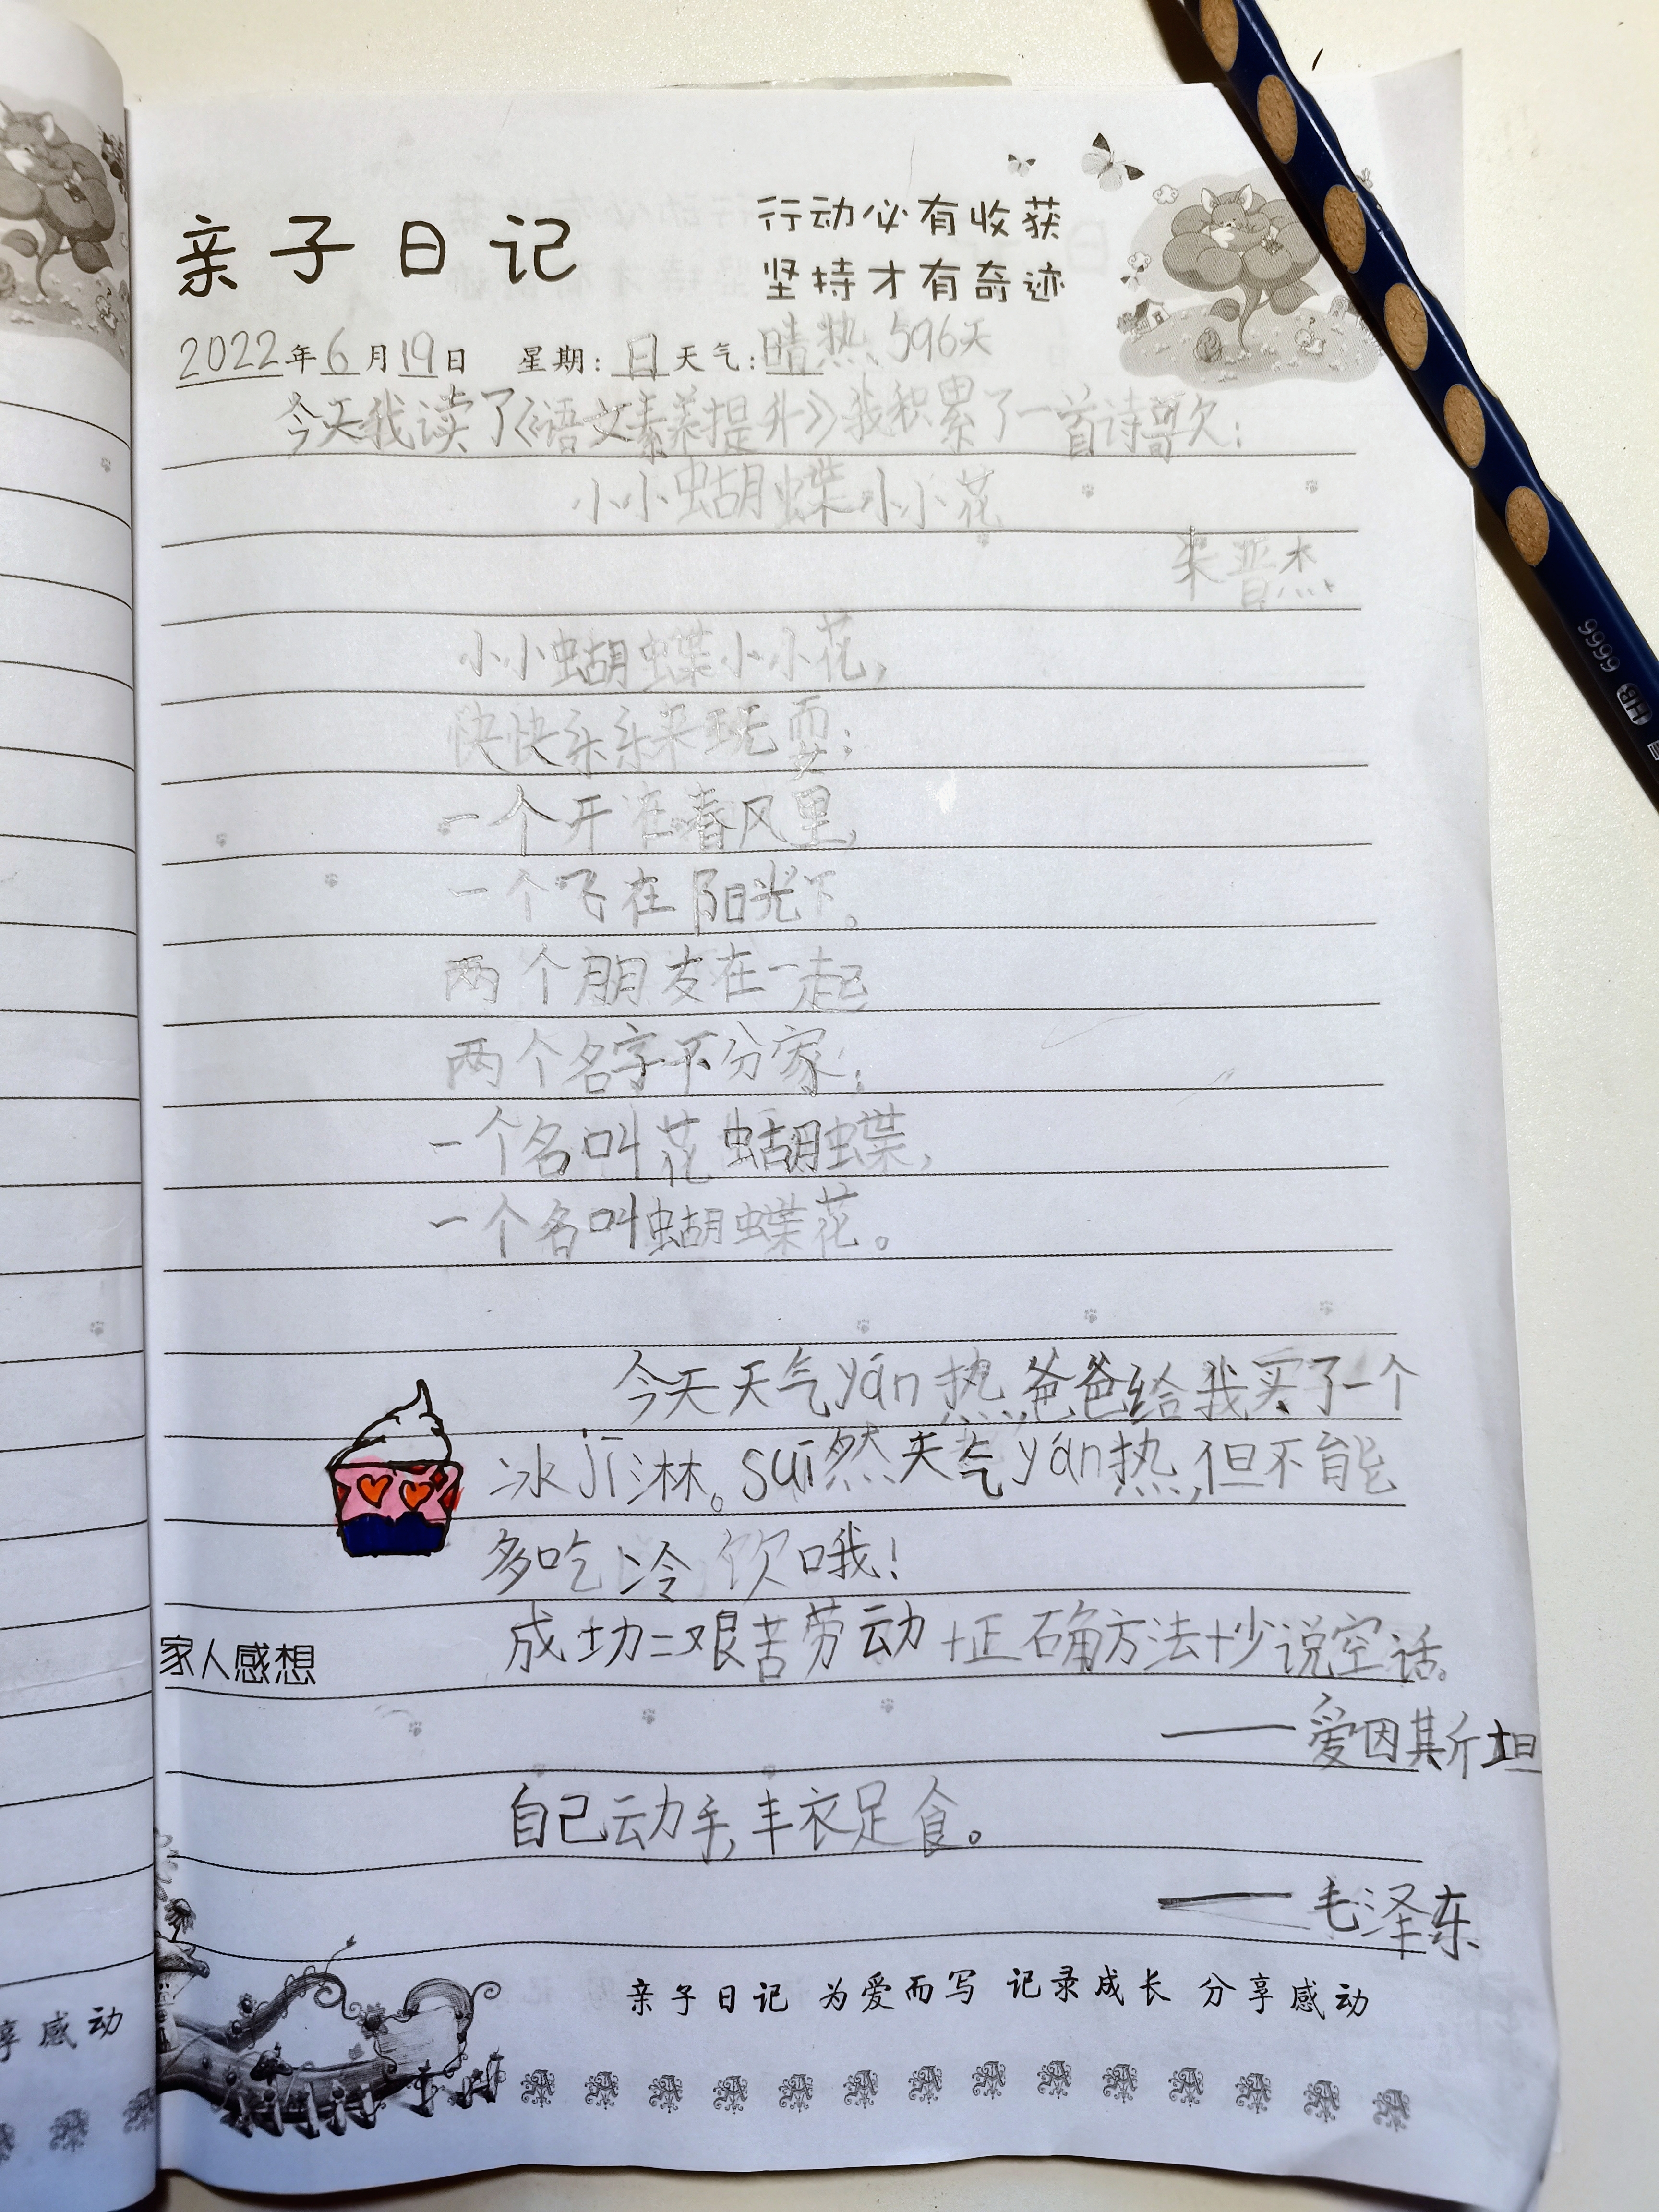 亲子日记
行动必有收获
坚持才有奇迹
2022年6月19日 星期:日天气:晴热 596天
今天我读了《语文素养提升》我积累了一首诗歌:
小小蝴蝶小小花
普杰
小小蝴蝶小小花,
快快乐乐来玩耍;
一个开在春风里,
一个飞在阳光下。
两个朋友在一起
两个名字不分家;
一个名叫花蝴蝶,
一个名叫蝴蝶花。
今天天气yán热,爸爸给我买了一个
冰jī淋。suī然天气yán热,但不能
多吃冷饮哦!
家人感想
成功=艰苦劳动+正确方法+少说空话。
——爱因斯坦
自己动手,丰衣足食。
——毛泽东
亲子日记 为爱而写 记录成长 分享感动
享感动
9999 HB